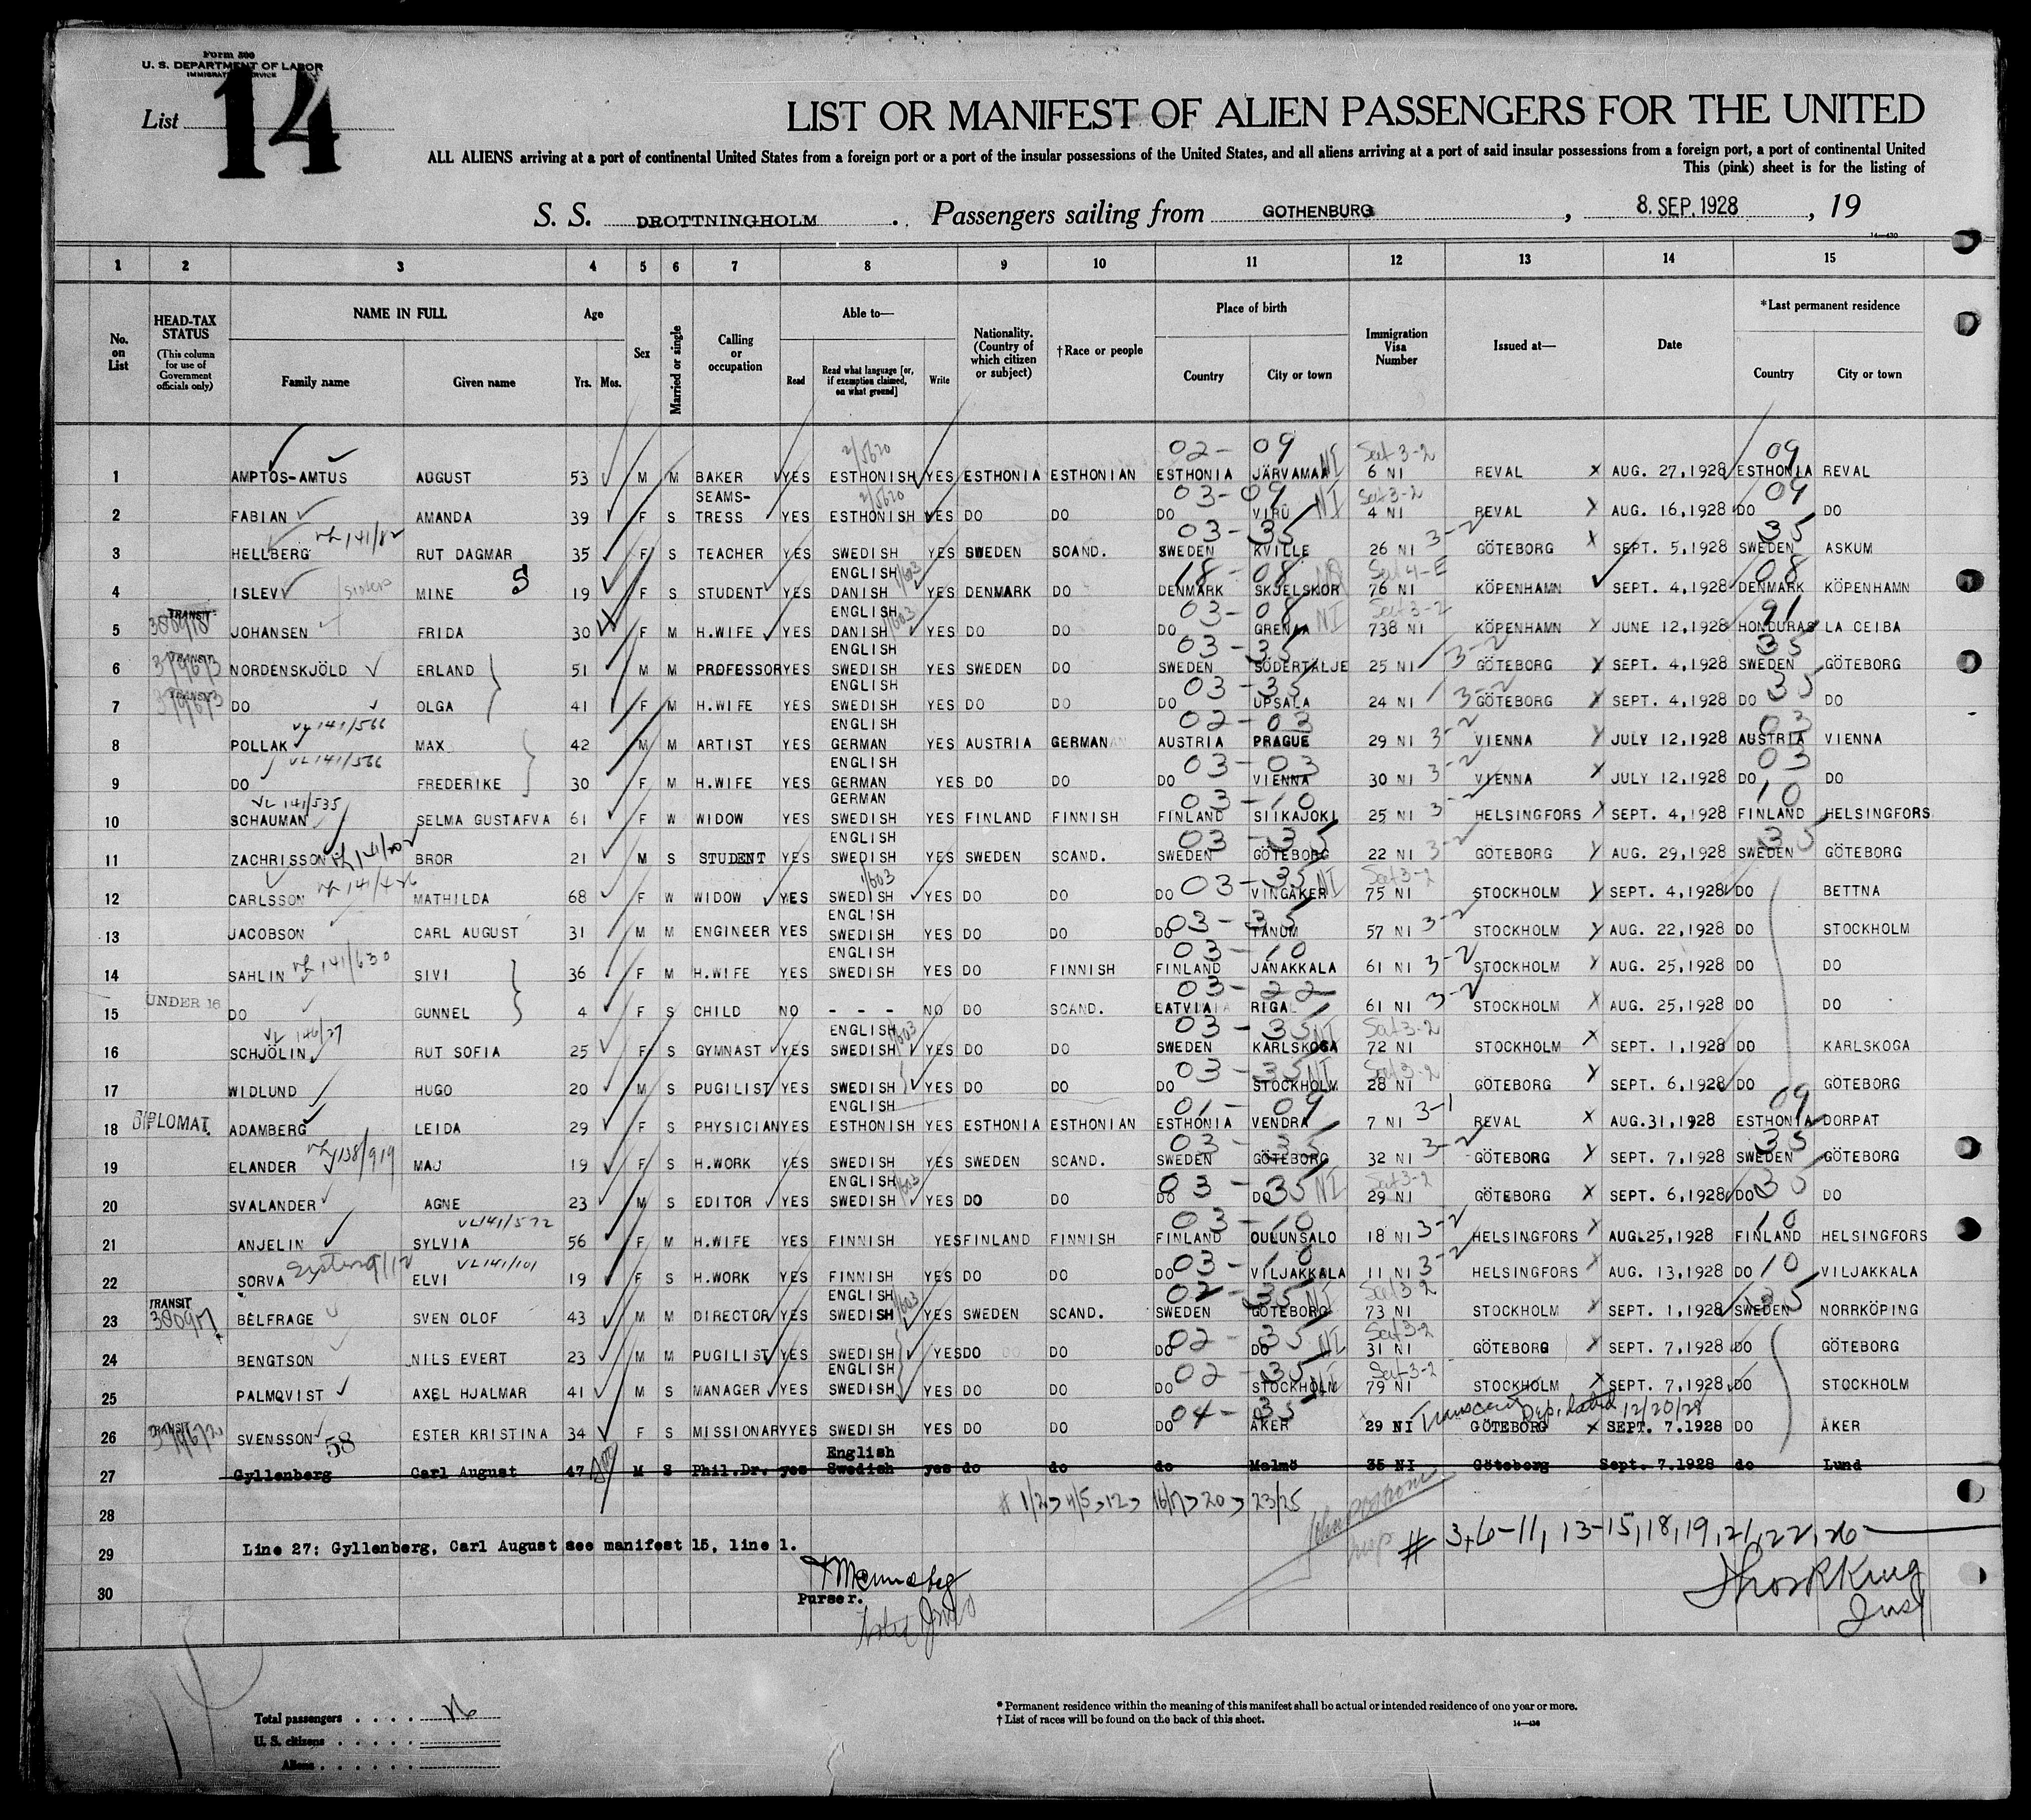 Form 500
U. S. DEPARTMENT OF LABOR
IMMIGRATION SERVICE
List 14
LIST OR MANIFEST OF ALIEN PASSENGERS FOR THE UNITED
ALL ALIENS arriving at a port of continental United States from a foreign port or a port of the insular possessions of the United States, and all aliens arriving at a port of said insular possessions from a foreign port, a port of continental United
This (pink) sheet is for the listing of
S. S. DROTTNINGHOLM . Passengers sailing from GOTHENBURG , 8. SEP. 1928 , 19
14—430
1 2 3 4 5 6 7 8 9 10 11 12 13 14 15
No. on List
HEAD-TAX STATUS (This column for use of Government officials only)
NAME IN FULL Family name Given name
Age Yrs. Mos.
Sex
Married or single
Calling or occupation
Able to— Read Read what language [or, if exemption claimed, on what ground] Write
Nationality. (Country of which citizen or subject)
†Race or people
Place of birth Country City or town
Immigration Visa Number
Issued at—
Date
*Last permanent residence Country City or town
02- 09 Sect 3-2 09
1 AMPTOS-AMTUS AUGUST 53 M M BAKER YES ESTHONISH YES ESTHONIA ESTHONIAN ESTHONIA JÄRVAMAA NI 6 NI REVAL X AUG. 27,1928 ESTHONIA REVAL
SEAMS- 03-09 Sect 3-2 09
2 FABIAN AMANDA 39 F S TRESS YES ESTHONISH YES DO DO DO VIRU NI 4 NI REVAL X AUG. 16,1928 DO DO
VL 141/82 03-35 3-2 35
3 HELLBERG RUT DAGMAR 35 F S TEACHER YES SWEDISH YES SWEDEN SCAND. SWEDEN KVILLE 26 NI GÖTEBORG X SEPT. 5,1928 SWEDEN ASKUM
ENGLISH 18-08 08
4 ISLEV MINE S 19 F S STUDENT YES DANISH YES DENMARK DO DENMARK SKJELSKOR 76 NI KÖPENHAMN SEPT. 4,1928 DENMARK KÖPENHAMN
TRANSIT ENGLISH 03-08 Sect 3-2 91
5 JOHANSEN FRIDA 30 F M H.WIFE YES DANISH YES DO DO DO GRENAA NI 738 NI KÖPENHAMN JUNE 12,1928 HONDURAS LA CEIBA
TRANSIT ENGLISH 03-35 3-2 35
6 NORDENSKJÖLD ERLAND 51 M M PROFESSOR YES SWEDISH YES SWEDEN DO SWEDEN SÖDERTALJE 25 NI GÖTEBORG X SEPT. 4,1928 SWEDEN GÖTEBORG
TRANSIT ENGLISH 03-35 3-2 35
7 DO OLGA 41 F M H.WIFE YES SWEDISH YES DO DO DO UPSALA 24 NI GÖTEBORG X SEPT. 4,1928 DO DO
VL 141/566 ENGLISH 02-03 3-2 03
8 POLLAK MAX 42 M M ARTIST YES GERMAN YES AUSTRIA GERMAN AUSTRIA PRAGUE 29 NI VIENNA X JULY 12,1928 AUSTRIA VIENNA
VL 141/566 ENGLISH 03-03 3-2 03
9 DO FREDERIKE 30 F M H.WIFE YES GERMAN YES DO DO DO VIENNA 30 NI VIENNA X JULY 12,1928 DO DO
VL 141/535 GERMAN 03-10 3-2 10
10 SCHAUMAN SELMA GUSTAFVA 61 F W WIDOW YES SWEDISH YES FINLAND FINNISH FINLAND SIIKAJOKI 25 NI HELSINGFORS X SEPT. 4,1928 FINLAND HELSINGFORS
ENGLISH 03-35 3-2 35
11 ZACHRISSON BROR 21 M S STUDENT YES SWEDISH YES SWEDEN SCAND. SWEDEN GÖTEBORG 22 NI GÖTEBORG X AUG. 29,1928 SWEDEN GÖTEBORG
03-35 Sect 3-2
12 CARLSSON MATHILDA 68 F W WIDOW YES SWEDISH YES DO DO DO VINGAKER NI 75 NI STOCKHOLM X SEPT. 4,1928 DO BETTNA
ENGLISH 03-35 3-2
13 JACOBSON CARL AUGUST 31 M M ENGINEER YES SWEDISH YES DO DO DO TANUM 57 NI STOCKHOLM X AUG. 22,1928 DO STOCKHOLM
VL 141/630 ENGLISH 03-10 3-2
14 SAHLIN SIVI 36 F M H.WIFE YES SWEDISH YES DO FINNISH FINLAND JANAKKALA 61 NI STOCKHOLM X AUG. 25,1928 DO DO
UNDER 16 03-22 3-2
15 DO GUNNEL 4 F S CHILD NO - - - NO DO SCAND. LATVIA RIGA 61 NI STOCKHOLM X AUG. 25,1928 DO DO
VL 146/27 ENGLISH 03-35 NI Sect 3-2
16 SCHJÖLIN RUT SOFIA 25 F S GYMNAST YES SWEDISH YES DO DO SWEDEN KARLSKOGA 72 NI STOCKHOLM X SEPT. 1,1928 DO KARLSKOGA
03-35 NI Sect 3-2
17 WIDLUND HUGO 20 M S PUGILIST YES SWEDISH YES DO DO DO STOCKHOLM 28 NI GÖTEBORG X SEPT. 6,1928 DO GÖTEBORG
DIPLOMAT. ENGLISH 01-09 3-1 09
18 ADAMBERG LEIDA 29 F S PHYSICIAN YES ESTHONISH YES ESTHONIA ESTHONIAN ESTHONIA VENDRA 7 NI REVAL X AUG.31,1928 ESTHONIA DORPAT
VL 138/919 03-35 3-2 35
19 ELANDER MAJ 19 F S H.WORK YES SWEDISH YES SWEDEN SCAND. SWEDEN GÖTEBORG 32 NI GÖTEBORG X SEPT. 7,1928 SWEDEN GÖTEBORG
ENGLISH 03-35 NI Sect 3-2 35
20 SVALANDER AGNE 23 M S EDITOR YES SWEDISH YES DO DO DO DO 29 NI GÖTEBORG X SEPT. 6,1928 DO DO
VL141/572 03-10 3-2 10
21 ANJELIN SYLVIA 56 F M H.WIFE YES FINNISH YES FINLAND FINNISH FINLAND OULUNSALO 18 NI HELSINGFORS X AUG.25,1928 FINLAND HELSINGFORS
VL141/101 03-10 3-2 10
22 SORVA ELVI 19 F S H.WORK YES FINNISH YES DO DO DO VILJAKKALA 11 NI HELSINGFORS X AUG. 13,1928 DO VILJAKKALA
TRANSIT ENGLISH 02-35 NI Sect 3-2 35
23 BELFRAGE SVEN OLOF 43 M M DIRECTOR YES SWEDISH YES SWEDEN SCAND. SWEDEN GÖTEBORG 73 NI STOCKHOLM SEPT. 1,1928 SWEDEN NORRKÖPING
02-35 NI Sect 3-2
24 BENGTSON NILS EVERT 23 M M PUGILIST YES SWEDISH YES DO DO DO DO 31 NI GÖTEBORG X SEPT. 7,1928 DO GÖTEBORG
ENGLISH 02-35 NI Sect 3-2
25 PALMQVIST AXEL HJALMAR 41 M S MANAGER YES SWEDISH YES DO DO DO STOCKHOLM 79 NI STOCKHOLM X SEPT. 7,1928 DO STOCKHOLM
TRANSIT 04-35 12/20/28
26 SVENSSON 58 ESTER KRISTINA 34 F S MISSIONARY YES SWEDISH YES DO DO DO ÅKER 29 NI GÖTEBORG X SEPT. 7.1928 DO ÅKER
English
27 Gyllenberg Carl August 47 M S Phil.Dr. yes Swedish yes do do do Malmö 35 NI Göteborg Sept. 7.1928 do Lund
28
# 3,6-11, 13-15,18,19,21,22,26
29 Line 27: Gyllenberg, Carl August see manifest 15, line 1.
30 Purser.
Total passengers . . . . 26
U. S. citizens . . . . .
Aliens . . . . . .
* Permanent residence within the meaning of this manifest shall be actual or intended residence of one year or more.
† List of races will be found on the back of this sheet.
14—430